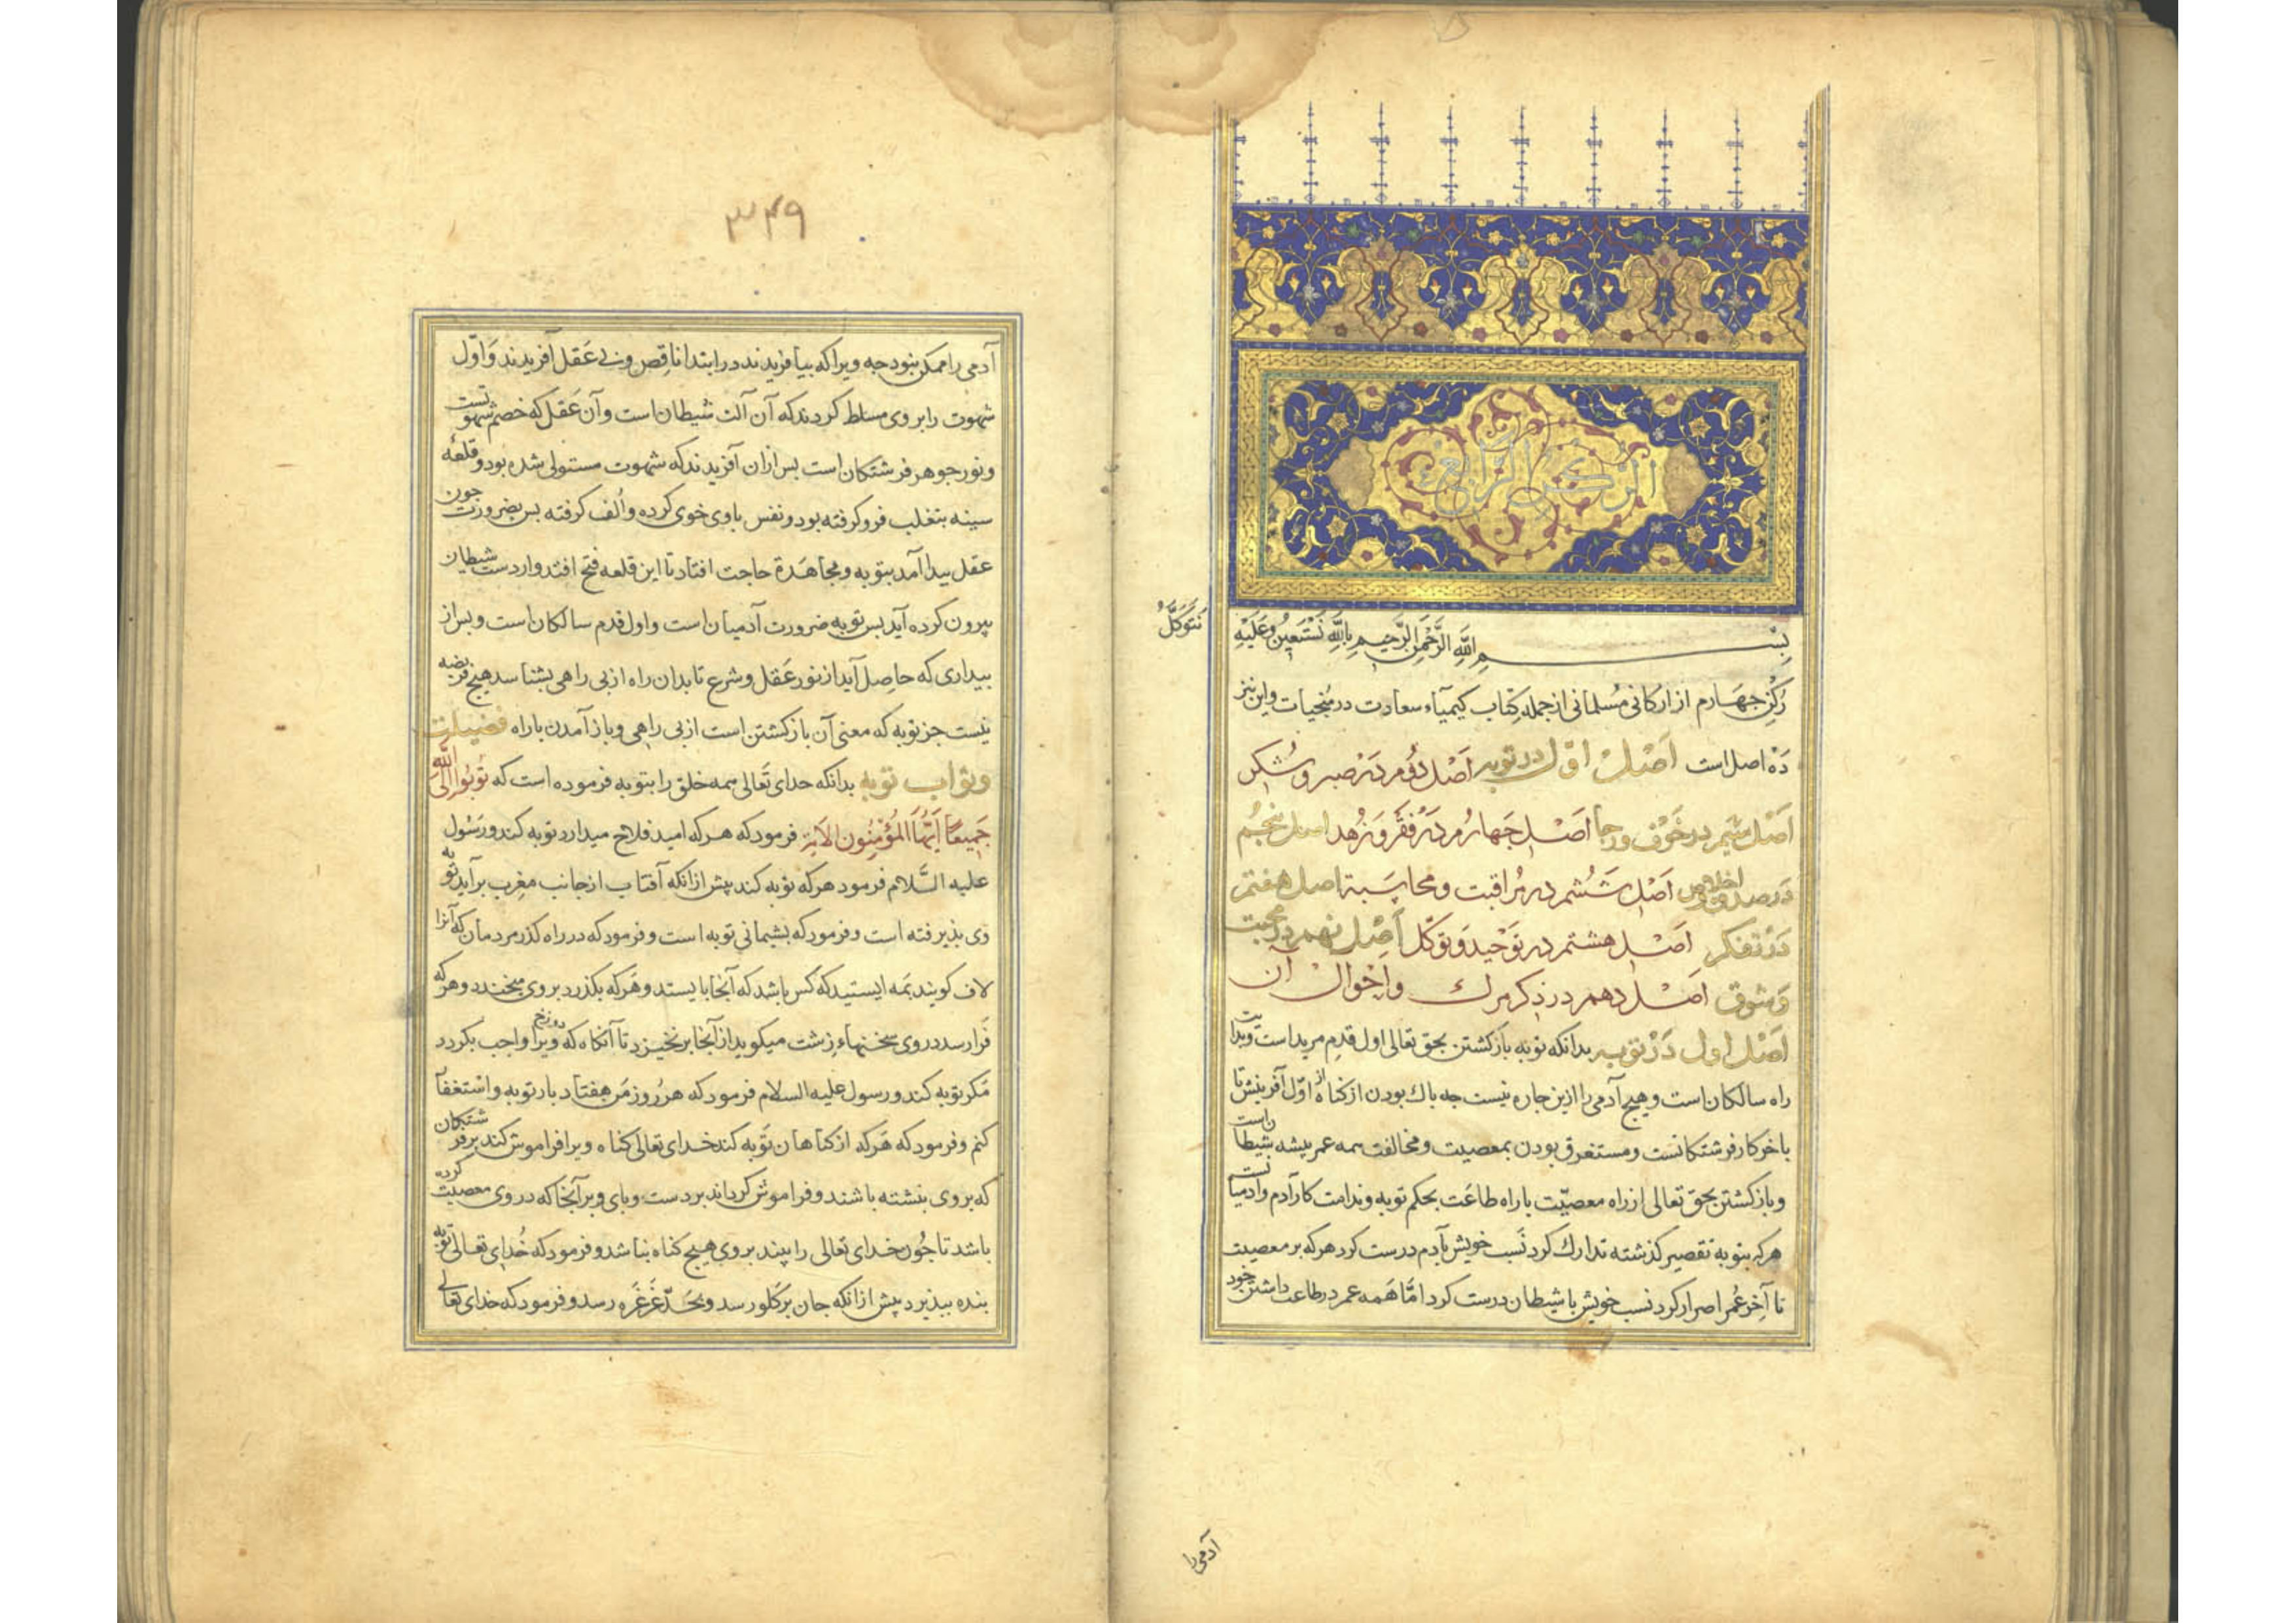 الركن الرابع
بسم الله الرحمن الرحيم بالله نستعين وعليه
نتوكل
ركن چهارم از اركانی مسلمانی از جمله كتاب كیمیاء سعادت در منجیات واین نیز
ده اصل است اصل اول در توبه اصل دؤم در صبر و شكر
اصل سیم در خوف ورجا اصل چهارم در فقر و زهد اصل پنجم
در صدق واخلاص اصل ششم در مراقبت ومحاسبة اصل هفتم
در تفكر اصل هشتم در توحید و توكل اصل نهم در محبت
و شوق اصل دهم در ذكر مرك واحوال آن
اصل اول در توبه بدانكه توبه باز كشتن بحق تعالی اول قدم مریداست وبدایت
راه سالكان است وهیچ آدمی را ازین چاره نیست چه باك بودن از كناه از اول آفرینش تا
باخر كار فرشتكانست ومستغرق بودن بمعصیت ومخالفت همه عمر بیشه شیطان است
وباز كشتن بحق تعالی از راه معصیت باراه طاعت بحكم توبه وندامت كار آدم وآدمیانست
هركه بتوبه تقصیر كذشته تدارك كرد نسب خویش بآدم درست كرد هركه بر معصیت
تا آخر عمر اصرار كرد نسب خویش با شیطان درست كرد اما همه عمر در طاعت داشتن خود
آدمی را
۳۴۹
آدمی را ممكن نبود چه ویرا كه بیافریدند در ابتدا ناقص وبی عقل آفریدند واول
شهوت را بر وی مسلط كردند كه آن آلت شیطان است وآن عقل كه خصم شهوتست
ونور جوهر فرشتكان است بس ازان آفریدند كه شهوت مستولی شده بود وقلعه
سینه بتغلب فرو كرفته بود ونفس باوی خوی كرده والف كرفته بس بضرورت چون
عقل بیدا آمد بتوبه ومجاهدة حاجت افتاد تا این قلعه فتح افتد واز دست شیطان
بیرون كرده آید بس توبه ضرورت آدمیان است واول قدم سالكان است وبس از
بیداری كه حاصل آید از نور عقل وشرع تا بدان راه از بی راهی بشناسد هیچ فریضه
نیست جز توبه كه معنی آن باز كشتن است از بی راهی وباز آمدن باراه فضیلت
وثواب توبه بدانكه خدای تعالی همه خلق را بتوبه فرموده است كه توبوا الی الله
جمیعا ایها المؤمنون الایة فرمود كه هركه امید فلاح میدارد توبه كند ورسول
علیه السلام فرمود هركه توبه كند پیش ازانكه آفتاب از جانب مغرب برآید توبه
وی بذیرفته است وفرمود كه بشیمانی توبه است وفرمود كه در راه كذر مردمان كه آنرا
لاف كویند مه ایستید كه كس باشد كه آنجا بایستد وهركه بكذرد بر وی میخندد وهركه
فرا رسد در وی سخنهاء زشت میكوید از آنجا برنخیزد تا آنكاه كه دوزخ ویرا واجب بكردد
مكر توبه كند ورسول علیه السلام فرمود كه هر روز من هفتاد بار توبه واستغفار
كنم وفرمود كه هركه از كناهان توبه كند خدای تعالی كناه ویرا فراموش كند بر فرشتكان
كه بر وی بنشته باشند وفراموش كرداند بر دست وبای وبر آنجا كه در وی معصیت كرده
باشد تا چون خدای تعالی را بیند بر وی هیچ كناه نباشد وفرمود كه خدای تعالی توبه
بنده ببذیرد پیش ازانكه جان بر كلو رسد وبحد غرغره رسد وفرمود كه خدای تعالی